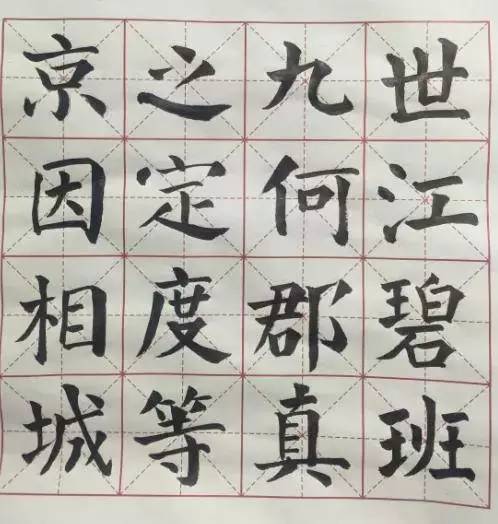 京之九世
因定何江
相度郡碧
城等真班